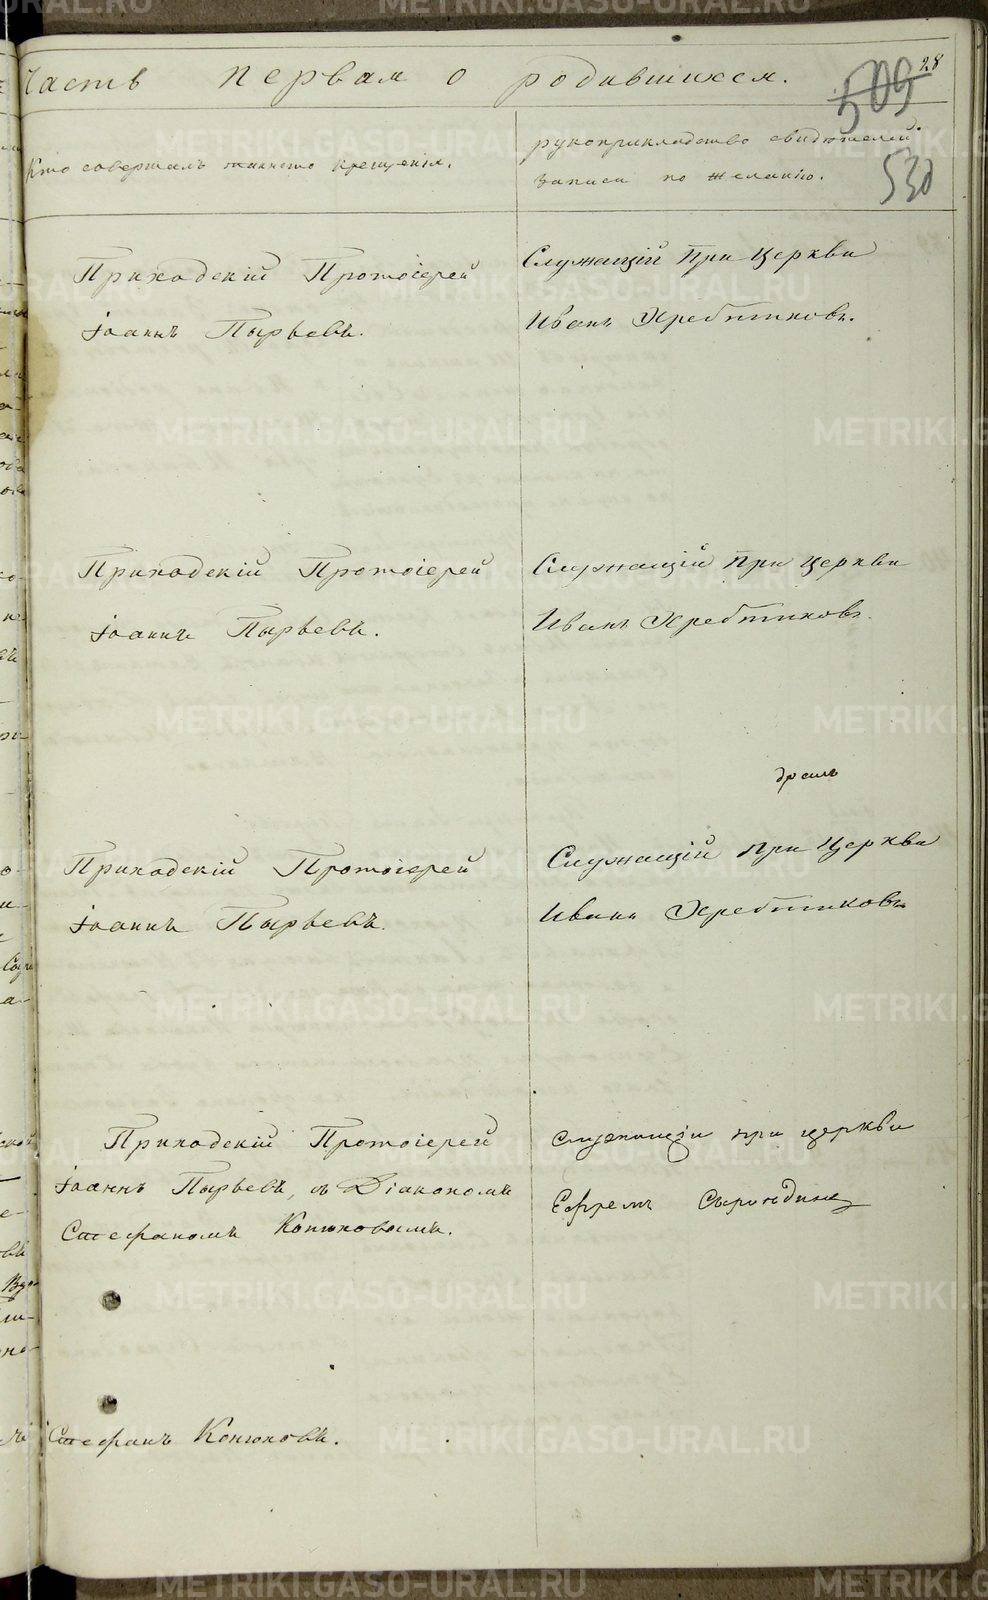 Часть первая о родившихся.
28
509
530
Кто совершалъ таинство крещенія.
рукоприкладство свидѣтелей
записи по желанію.
Приходскій Протоіерей
Іоаннъ Пырьевъ.
Служащій При Церкви
Иванъ Хребтиковъ.
Приходскій Протоіерей
Іоаннъ Пырьевъ.
Служащій При Церкви
Иванъ Хребтиковъ.
Приходскій Протоіерей
Іоаннъ Пырьевъ.
Служащій При Церкви
Иванъ Хребтиковъ
Приходскій Протоіерей
Іоаннъ Пырьевъ, съ Діакономъ
Стефаномъ Конюховымъ.
Служащій при церкви
Ефремъ
Стефанъ Конюховъ.
METRIKI.GASO-URAL.RU